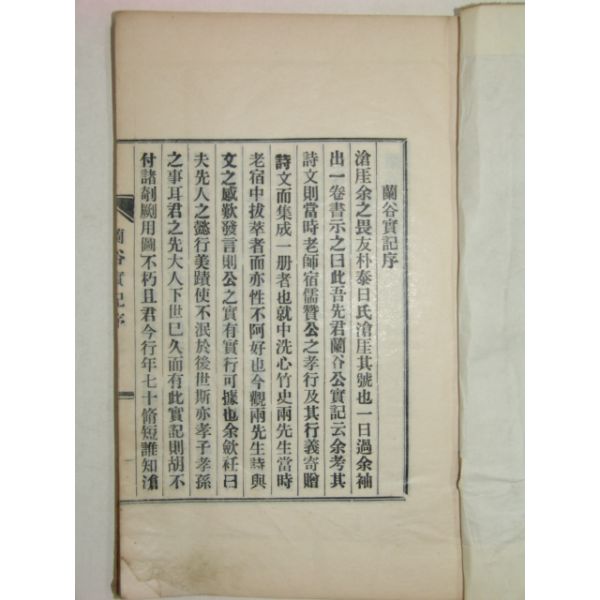 蘭谷實記序
滄厓余之畏友朴泰日氏滄厓其號也一日過余袖
出一卷書示之曰此吾先君蘭谷公實記云余考其
詩文則當時老師宿儒贊公之孝行及其行義寄贈
詩文而集成一册者也就中洗心竹史兩先生當時
老宿中拔萃者而亦性不阿好也今觀兩先生詩與
文之感歎發言則公之實有實行可據也余歛衽曰
夫先人之懿行美蹟使不泯於後世斯亦孝子孝孫
之事耳君之先大人下世已久而有此實記則胡不
付諸剞劂用圖不朽且君今行年七十脩短誰知滄
蘭谷實記序